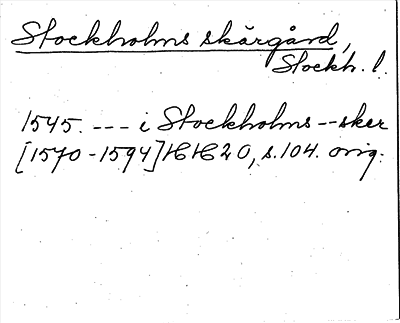 Stockholms skärgård,
Stockh. l.
1545. --- i Stockholms--sker
[1570-1594] HH 20, s. 104. orig.